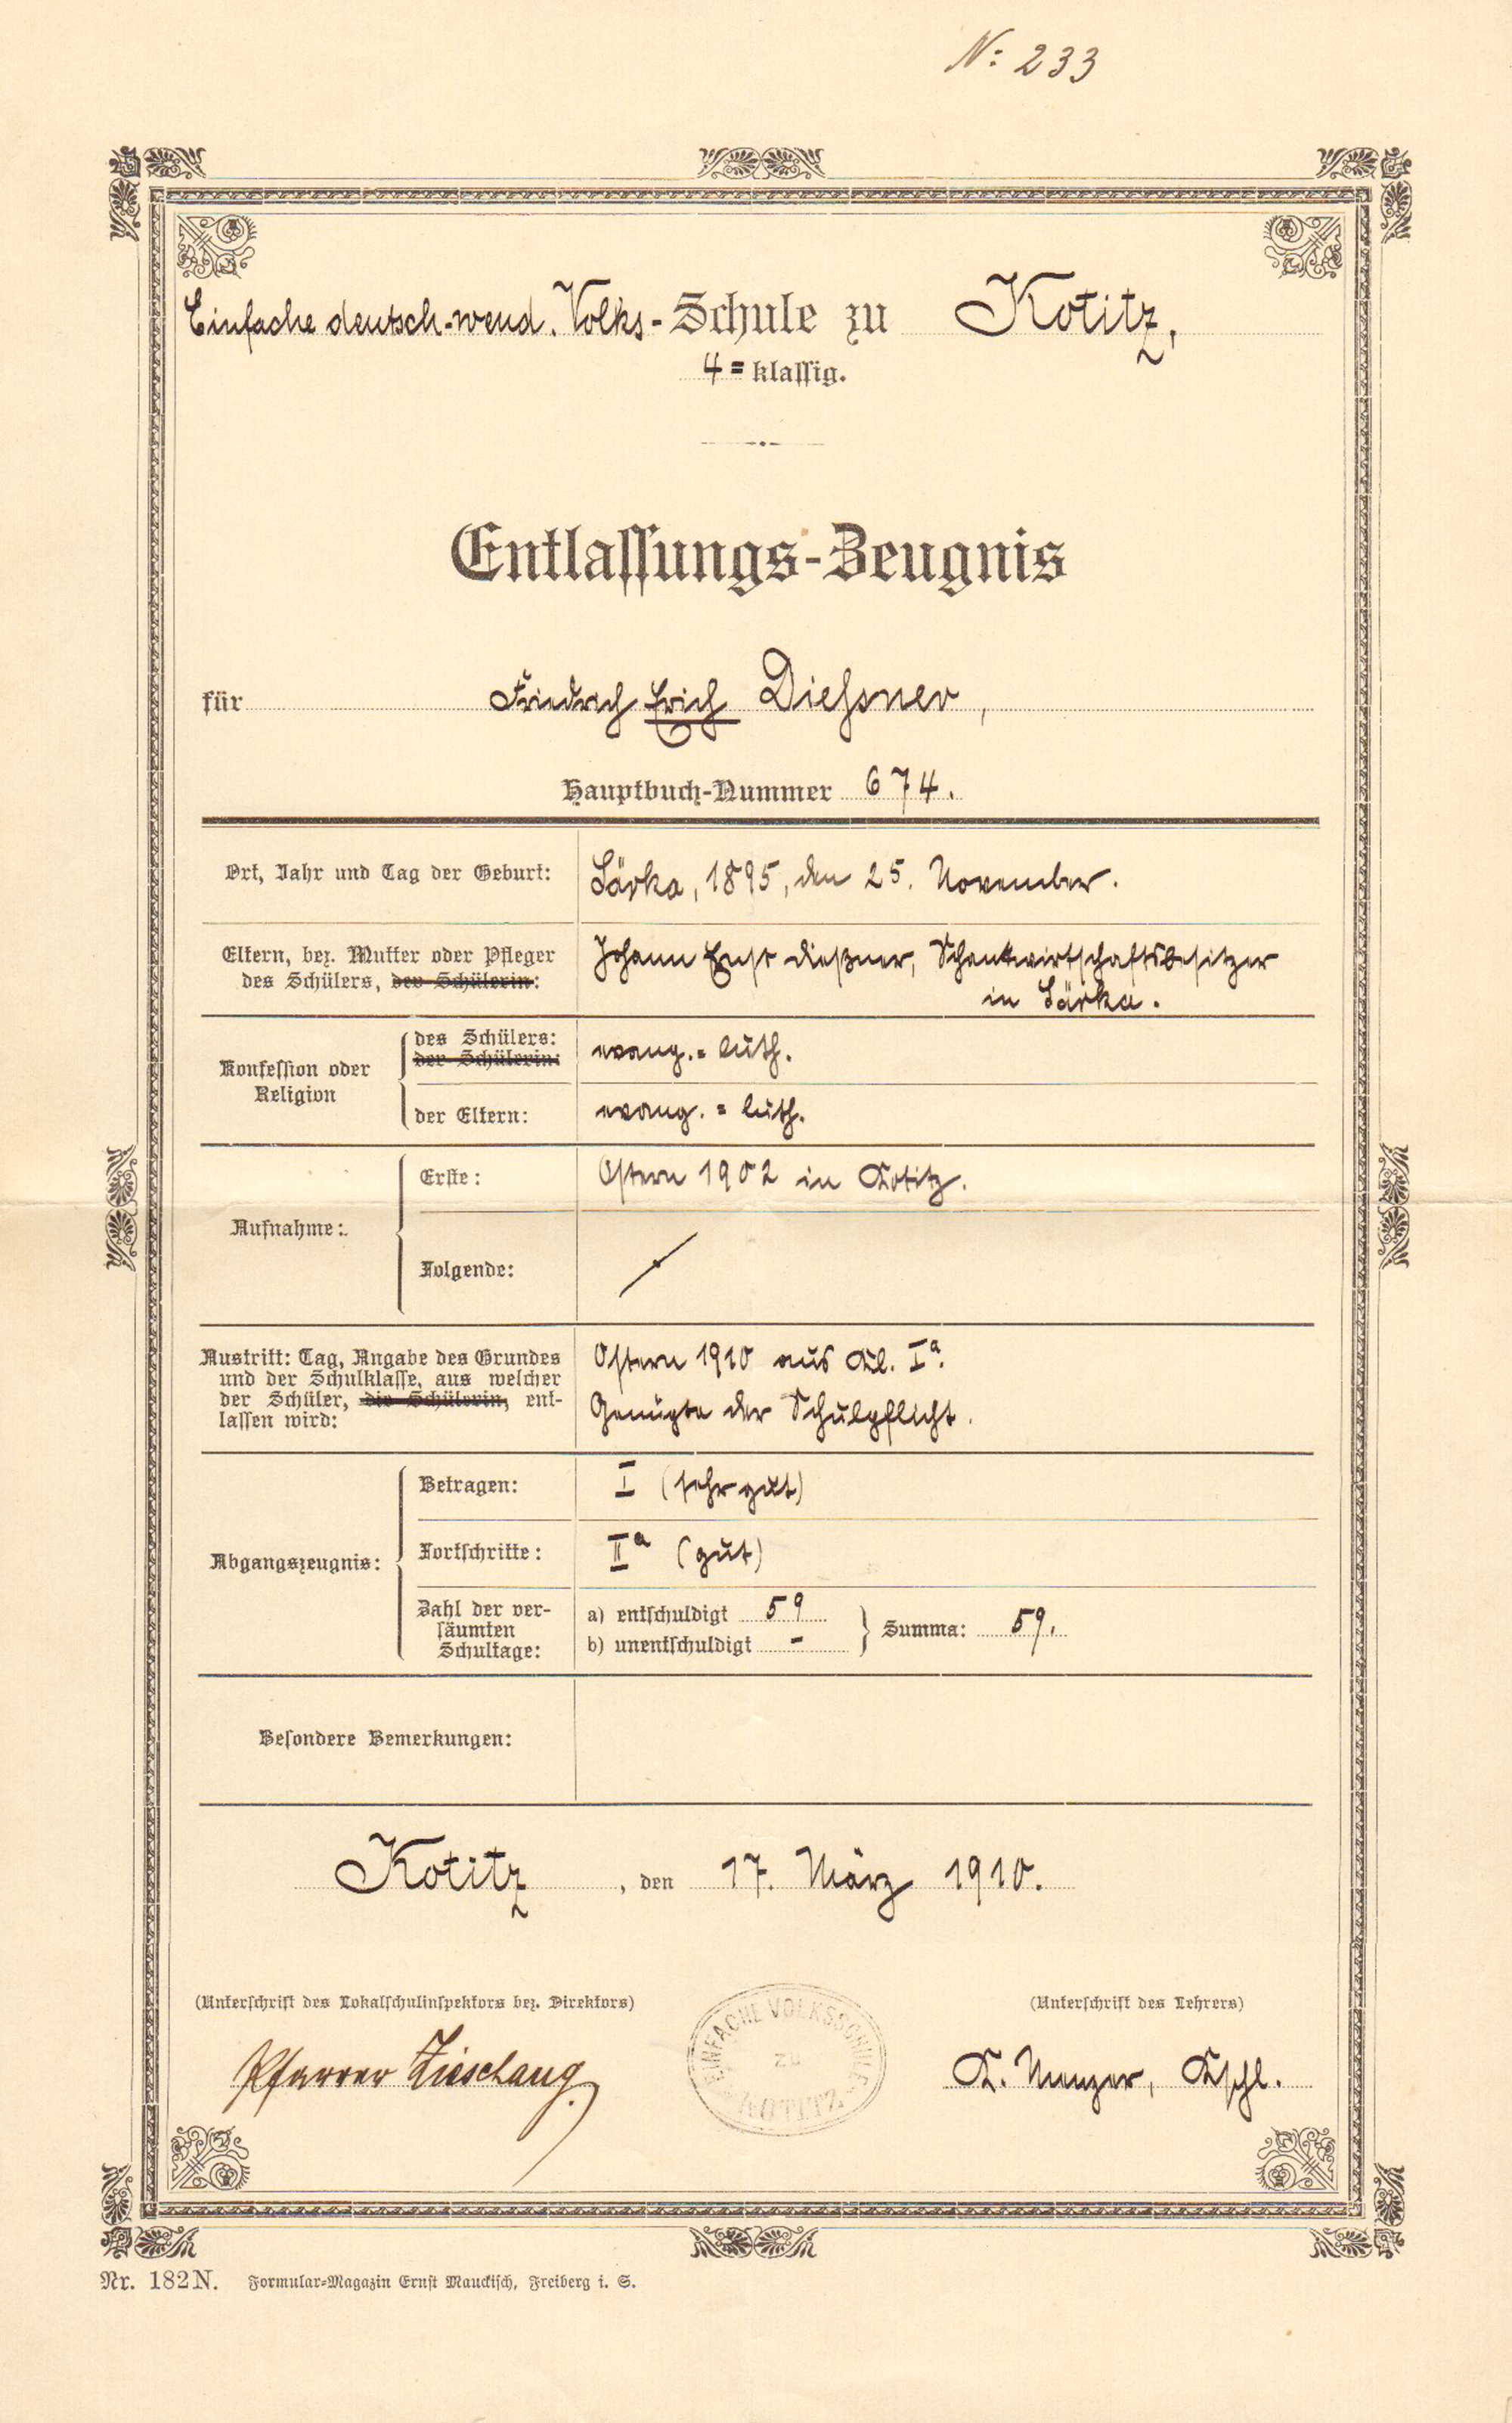 N: 233
Einfache deutsch-wend. Volks-Schule zu Kotitz,
4=klaſſig.
Entlaſſungs-Zeugnis
für Friedrich Erich Dießner,
Hauptbuch-Nummer 674.
Ort, Jahr und Tag der Geburt: Särka, 1895, den 25. November.
Eltern, bez. Mutter oder Pfleger
des Schülers, der Schülerin:
Johann Ernst Dießner, Schankwirtschaftsbesitzer
in Särka.
Konfeſſion oder
Religion
des Schülers:
der Schülerin:
evang.=luth.
der Eltern: evang.=luth.
Aufnahme:
Erſte: Oſtern 1902 in Kotitz.
Folgende:
Austritt: Tag, Angabe des Grundes
und der Schulklaſſe, aus welcher
der Schüler, die Schülerin, ent-
laſſen wird:
Oſtern 1910 aus Kl. Iª.
Genügte der Schulpflicht.
Abgangszeugnis:
Betragen: I (ſehr gut)
Fortſchritte: IIª (gut)
Zahl der ver-
ſäumten
Schultage:
a) entſchuldigt 59
b) unentſchuldigt -
Summa: 59.
Beſondere Bemerkungen:
Kotitz, den 17. März 1910.
(Unterſchrift des Lokalſchulinſpektors bez. Direktors)
(Unterſchrift des Lehrers)
Pfarrer Zieschang.
EINFACHE VOLKSSCHULE
ZU
KOTITZ
K. Menzer, Kſchl.
Nr. 182N. Formular-Magazin Ernſt Mauckiſch, Freiberg i. S.